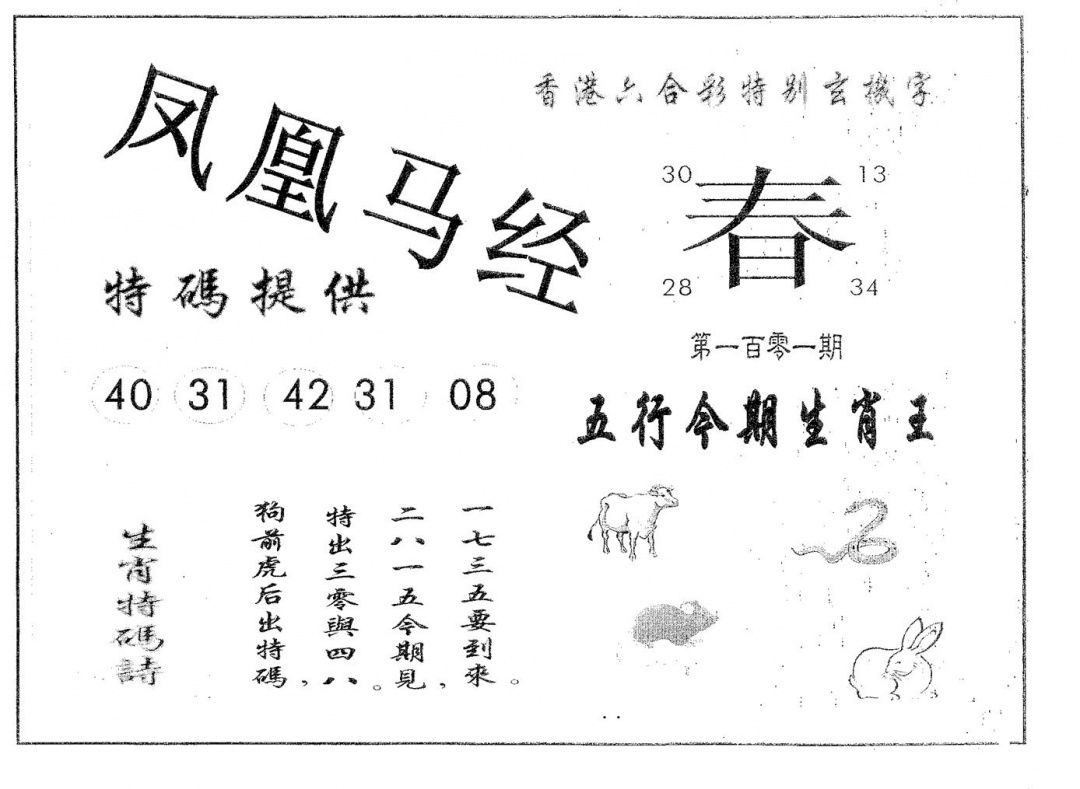 凤凰马经
特碼提供
40 31 42 31 08
香港六合彩特别玄機字
30 13
春
28 34
第一百零一期
五行今期生肖王
生肖特碼詩
狗前虎后出特碼，
特出三零與四八。
二八一五今期見，
一七三五要到來。